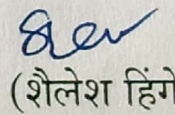 (शैलेश हिंगे